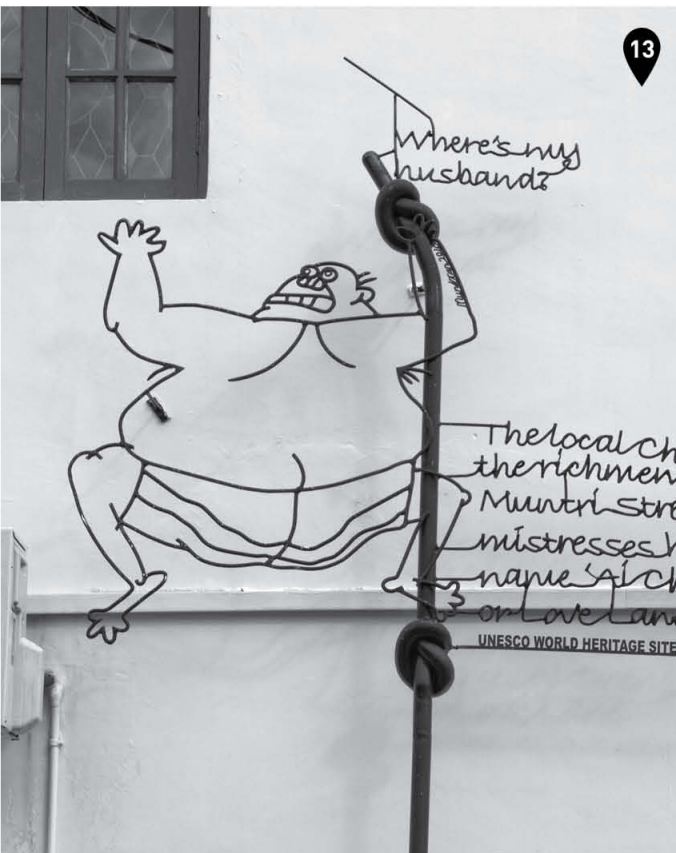 13
Where's my
husband?
The local Ch
the rich men
Muntri Stre
mistresses h
name 'Ai Ch
or Love Lane
UNESCO WORLD HERITAGE SITE